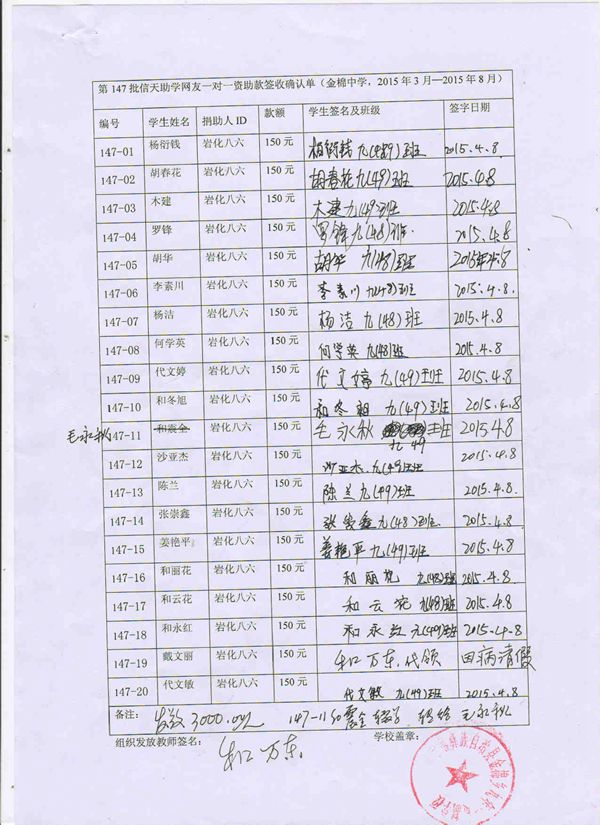 第 147 批信天助学网友一对一资助款签收确认单（金棉中学，2015 年 3 月—2015 年 8 月）
编号 学生姓名 捐助人 ID 款额 学生签名及班级 签字日期
147-01 杨衍钱 岩化八六 150 元 杨衍钱 九(49)班 2015.4.8
147-02 胡春花 岩化八六 150 元 胡春花九(49)班 2015.4.8
147-03 木建 岩化八六 150 元 木建九(49)班 2015.4.8
147-04 罗锋 岩化八六 150 元 罗锋九(48)班 2015.4.8
147-05 胡华 岩化八六 150 元 胡华 九(48)班 2015年4.8
147-06 李素川 岩化八六 150 元 李素川 九(48)班 2015.4.8.
147-07 杨洁 岩化八六 150 元 杨洁九(48)班 2015.4.8
147-08 何学英 岩化八六 150 元 何学英 九(48)班 2015.4.8
147-09 代文婷 岩化八六 150 元 代文婷九(49)班 2015.4.8
147-10 和冬旭 岩化八六 150 元 和冬旭九(49)班 2015.4.8
毛永秋 147-11 和震全 岩化八六 150 元 毛永秋 班 2015.4.8
九 49
147-12 沙亚杰 岩化八六 150 元 沙亚杰.九(49)班 2015.4.8
147-13 陈兰 岩化八六 150 元 陈兰九(49)班 2015.4.8
147-14 张崇鑫 岩化八六 150 元 张崇鑫九(48)班 2015.4.8
147-15 姜艳平 岩化八六 150 元 姜艳平九(49)班 2015.4.8
147-16 和丽花 岩化八六 150 元 和丽花 九(48)班 2015.4.8.
147-17 和云花 岩化八六 150 元 和云花 九(48)班 2015.4.8
147-18 和永红 岩化八六 150 元 和永红九(49)班 2015.4.8
147-19 戴文丽 岩化八六 150 元 和万东.代领 因病请假
147-20 代文敏 岩化八六 150 元 代文敏 九(49)班 2015.4.8
备注： 发放3000.00元 147-11和震全辍学 转给毛永秋
组织发放教师签名： 学校盖章：
和万东.